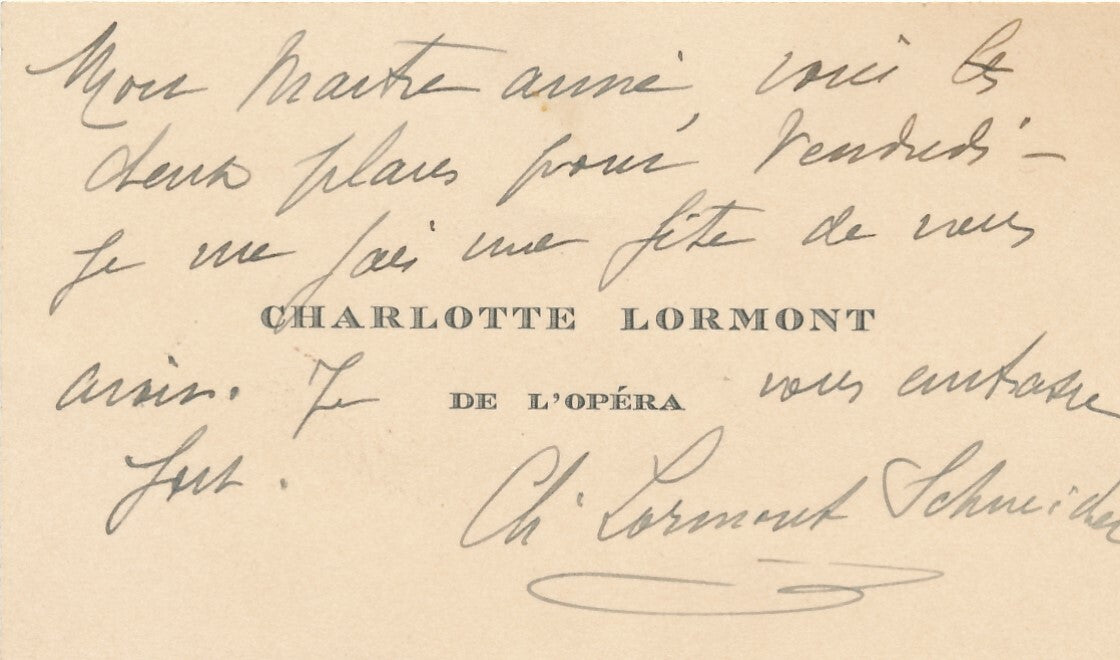 Mon Maitre aimé, voici les
deux places pour Vendredi —
Je me fais une fête de vous
CHARLOTTE LORMONT
avoir. Je vous embrasse
DE L'OPÉRA
fort.
Ch. Lormont Schneider